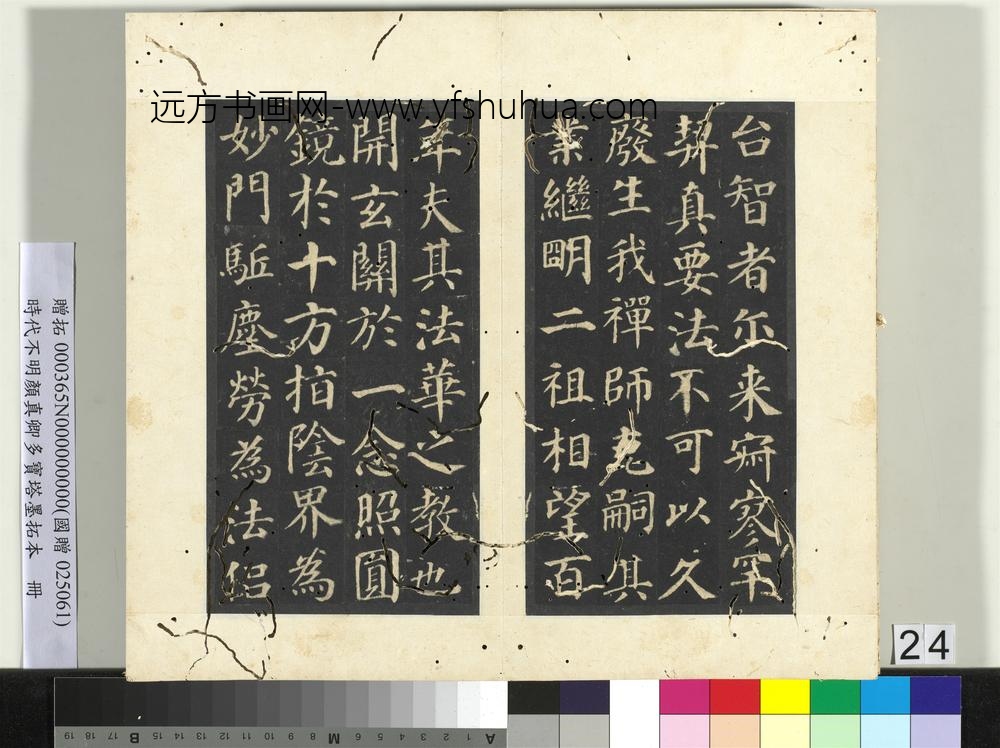 远方书画网-www.yfshuhua.com
台智者尒来寂寥罕
契真要法不可以久
廢生我禪師克嗣其
業繼明二祖相望百
年夫其法華之教也
開玄關於一念照圓
鏡於十方指陰界為
妙門駈塵勞為法侣
贈拓 000365N000000000(國贈 025061)
時代不明顏真卿多寶塔墨拓本 冊
24
A 1 2 3 4 5 6 M 8 9 10 11 12 13 14 15 B 17 18 19